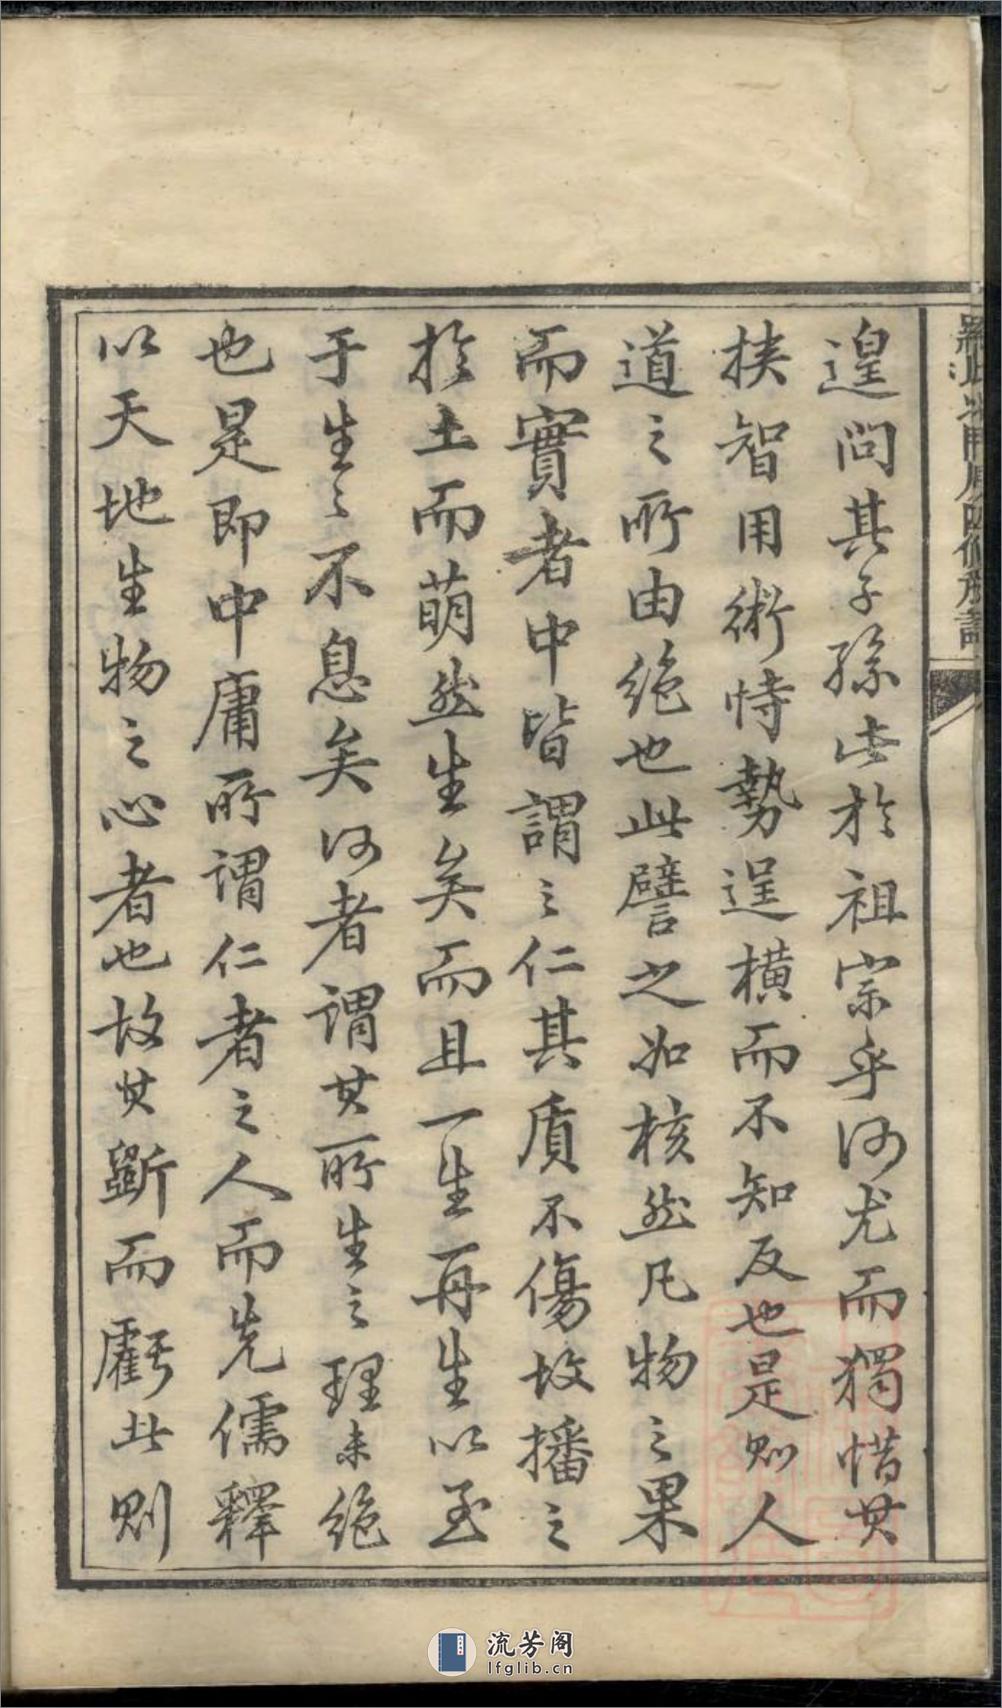 遑問其子孫此於祖宗乎何尤而獨惜其
挾智用術恃勢逞橫而不知反也是則人
道之所由絶也此譬之如核然凡物之果
而實者中皆謂之仁其質不傷故播之
於土而萌然生矣而且一生再生以至
于生生不息矣何者謂其所生之理未絶
也是即中庸所謂仁者之人而先儒釋
以天地生物之心者也故其斷而虧此則
流芳阁
lfglib.cn